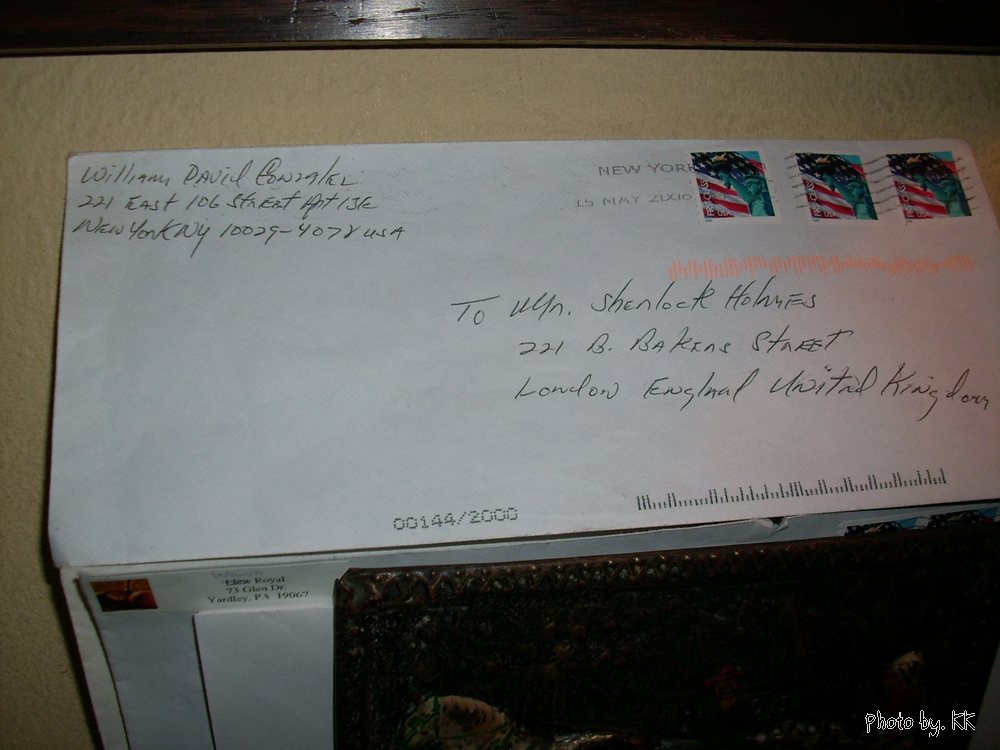 William David Gonzalez
221 East 106 Street Apt 13E
New York Ny 10029-4078 USA
NEW YORK
15 MAY 2006
FIRST-CLASS
USA
FIRST-CLASS
USA
FIRST-CLASS
USA
To Mr. Sherlock Holmes
221 B. Bakers Street
London England United Kingdom
00144/2000
Royal
73 Glen Dr.
Yardley, PA 19067
Photo by. KK